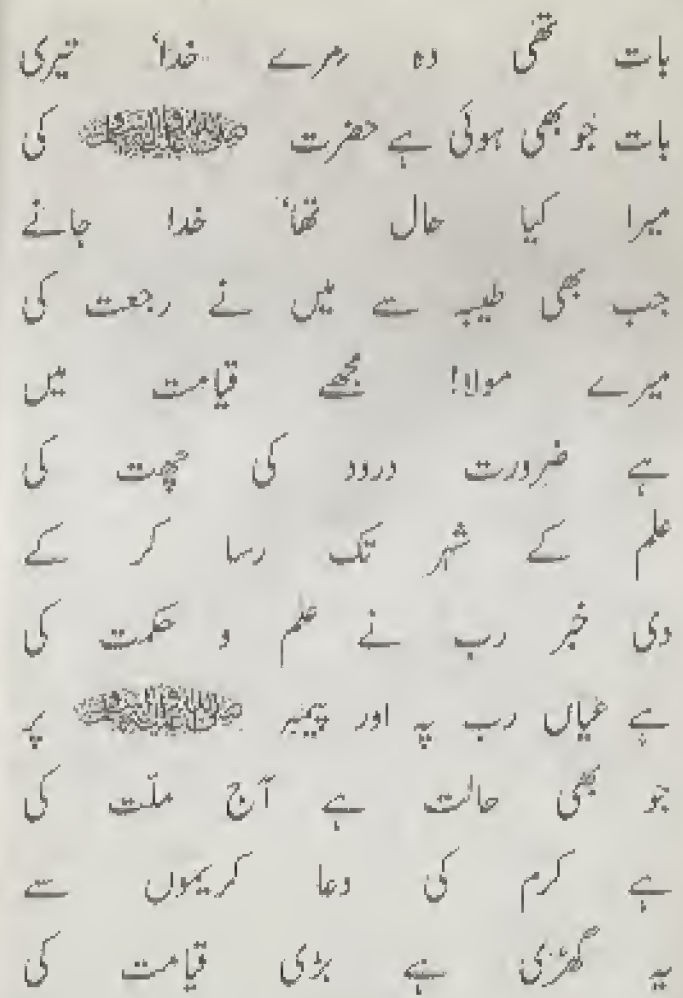 بات تھی وہ مرے خدا، تیری
بات جو بھی ہوئی ہے حضرت صلی اللہ علیہ وآلہ وسلم کی
میرا کیا حال تھا، خدا جانے
جب بھی طیبہ سے میں نے رجعت کی
میرے مولا! مجھے قیامت میں
ہے ضرورت درود کی چھت کی
علم کے شہر تک رسا کر کے
دی خبر رب نے علم و حکمت کی
ہے عیاں رب پہ اور پیمبر صلی اللہ علیہ وآلہ وسلم پر
جو بھی حالت ہے آج ملّت کی
ہے کرم کی دعا کریموں سے
یہ گھڑی ہے بڑی قیامت کی